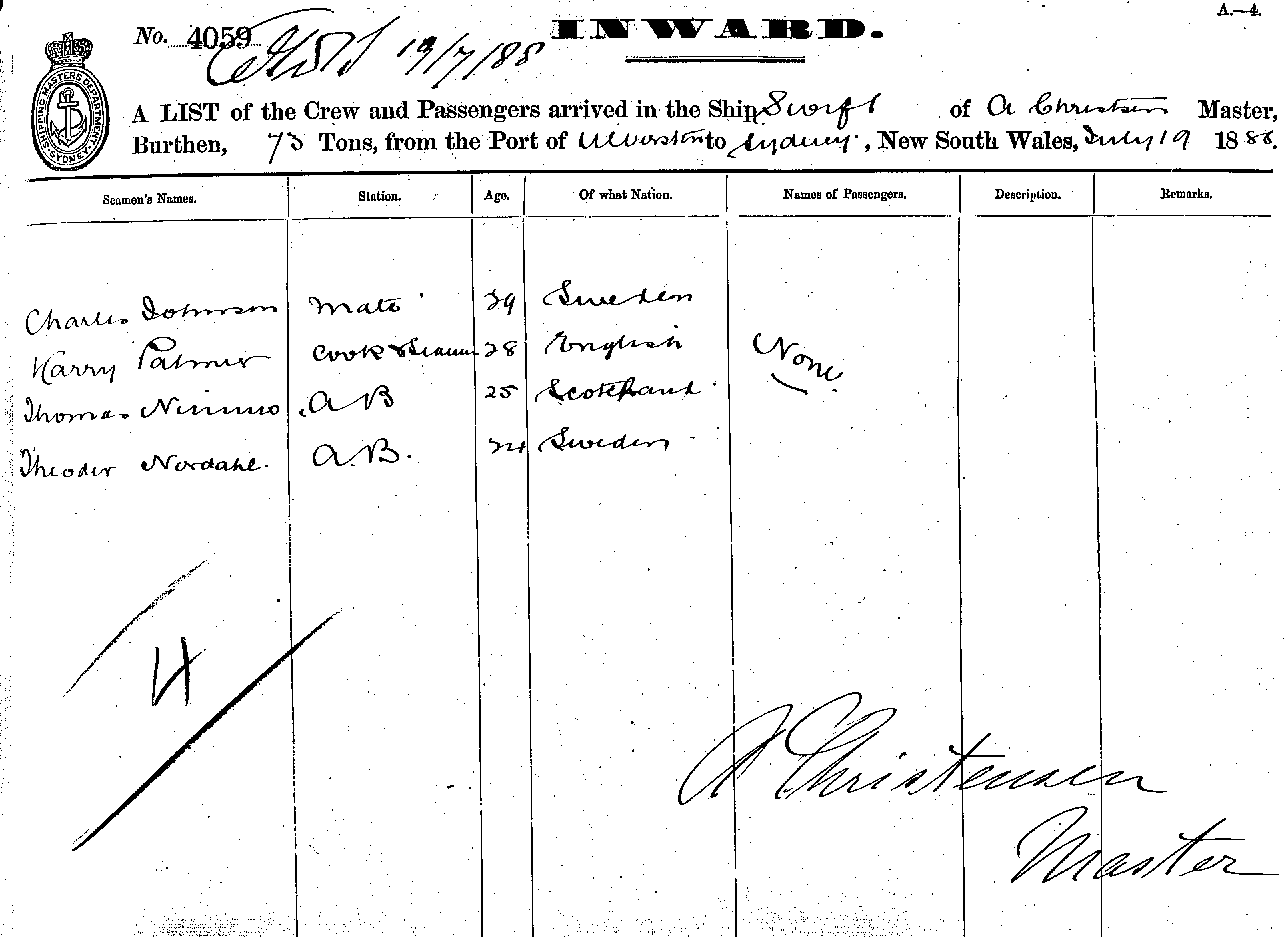 A.—4.
No. 4059
INWARD.
19/7/88
SHIPPING MASTERS DEPARTMENT SYDNEY
A LIST of the Crew and Passengers arrived in the Ship Swift of A Christsen Master,
Burthen, 73 Tons, from the Port of Ulverston to Sydney, New South Wales, July 19 1888.
Seamen's Names. Station. Age. Of what Nation. Names of Passengers. Description. Remarks.
Charles Johnson Mate 29 Sweden
Harry Palmer Cook & Seaman 28 English None
Thomas Nimmo A B 25 Scotchand
Theoder Nordahl. A.B. 24 Sweden
4
A Christensen
Master